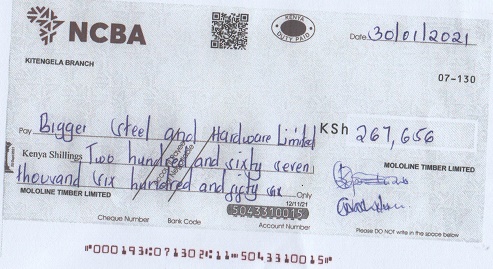 NCBA
KENYA
DUTY PAID
Date 30/01/2021
KITENGELA BRANCH
07-130
Pay Bigger steel and Hardware Limited KSh 267,656
Kenya Shillings Two hundred and sixty seven
MOLOLINE TIMBER LIMITED
thousand six hundred and fifty six Only
MOLOLINE TIMBER LIMITED
12/11/21
5043310015
Cheque Number Bank Code Account Number
Please DO NOT write in the space below
"000193"071302"11"5043310015"